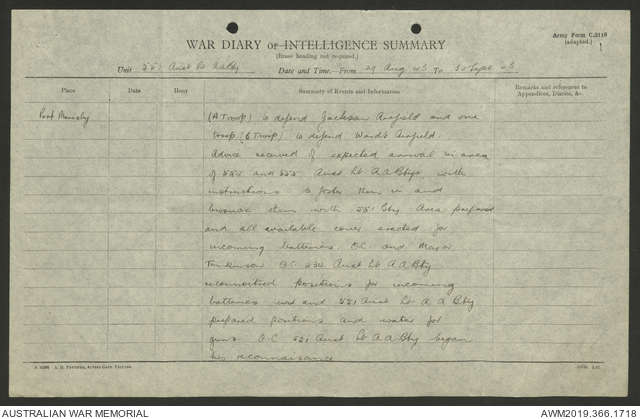 Army Form C.2118
(adapted.)
1
WAR DIARY or INTELLIGENCE SUMMARY
(Erase heading not required.)
Unit 551 Aust Lt AABty Date and Time—From 29 Aug 43 To 30 Sept 43
Place Date Hour Summary of Events and Information Remarks and references to Appendices, Diaries, &c.
Port Moresby (A Troop) to defend Jackson Airfield and one
troop (B Troop) to defend Wards Airfield.
Advice received of expected arrival in area
of 554 and 555 Aust Lt A A Btys with
instructions to foster them in and
bivouac them with 551 Bty. Area prepared
and all available cover erected for
incoming batteries. O.C. and Major
Tomkinson O.C 234 Aust Lt A A Bty
reconnoitred positions for incoming
batteries and 551 Aust Lt A A Bty
prepared positions and water for
guns. O.C 551 Aust Lt A A Bty began
his reconnaissance
AUSTRALIAN WAR MEMORIAL
AWM2019.366.1718